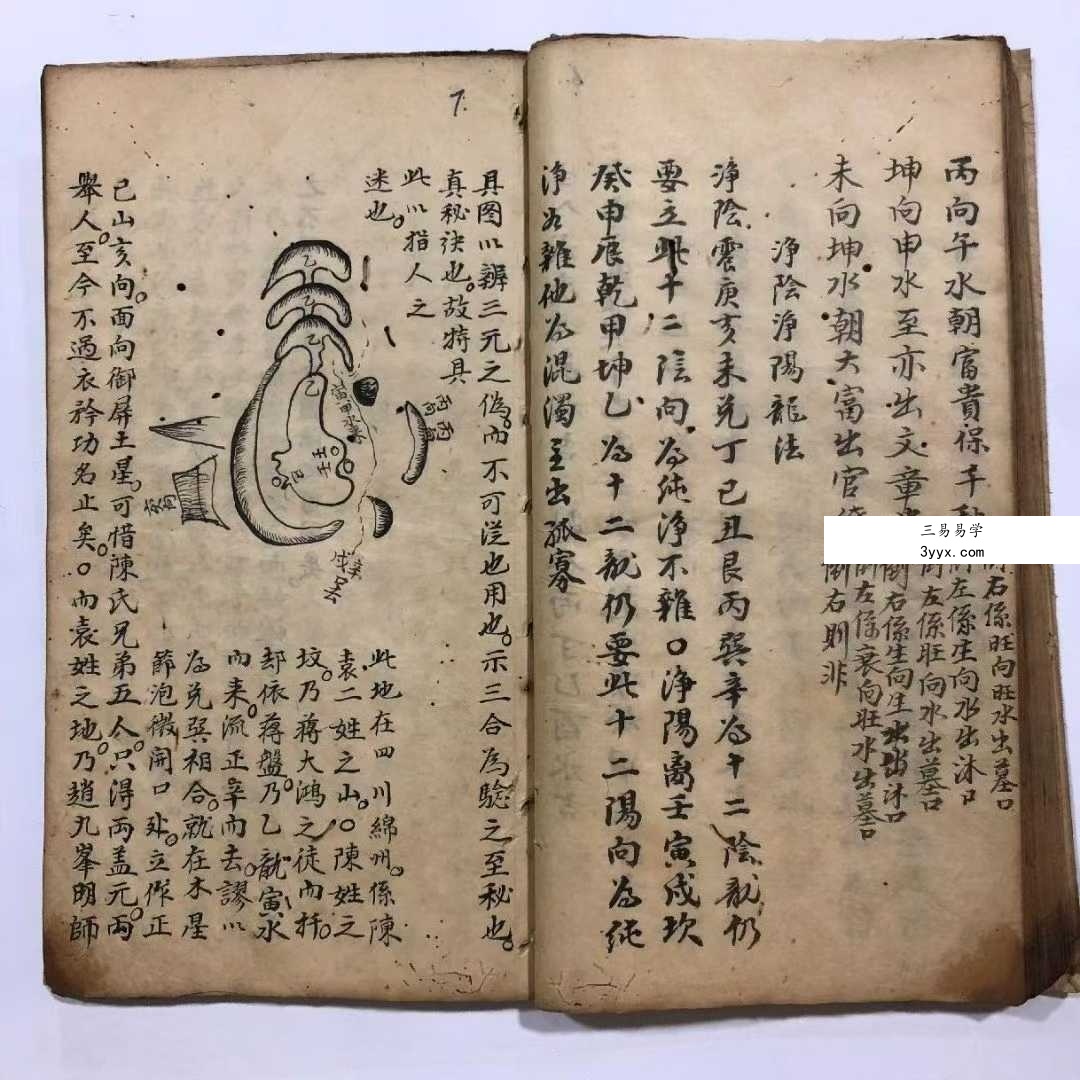 丙向午水朝富貴保千
坤向申水至亦出文章
未向坤水朝大富出官
右係旺向旺水出墓口
左係生向水出沐口
左係旺向水出墓口
右係生向生水出沐口
左係衰向旺水出墓口
右則非
淨陰淨陽龍法
淨陰震庚亥未兌丁巳丑艮丙巽辛為十二陰龍仍
要立此十二陰向為純淨不雜○淨陽离壬寅戌坎
癸申辰乾甲坤乙為十二龍仍要此十二陽向為純
淨如雜他為混濁主出孤寡
三易易学
3yyx.com
7.
具图以辨三元之偽而不可從也用也示三合為驗之至秘也
真秘诀也故特具
此以指人之
迷也
乙
乙
乙
乙
寅甲水來
丙
壬
巳
此地在四川綿州係陳
袁二姓之山○陳姓之
坟乃蔣大鴻之徒而扦
却依蔣盤乃乙龍寅水
而来流正辛而去謬以
為兌巽相合就在木星
節泡微開口处立作正
巳山亥向面向御屏土星可惜陳氏兄弟五人只得两盖元两
舉人至今不過衣衿功名止矣○而袁姓之地乃趙九峯明師